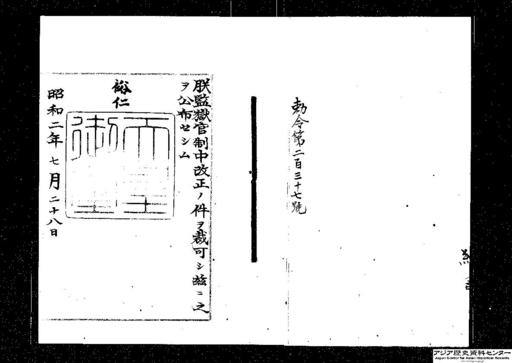 勅令第二百三十七號
朕監獄官制中改正ノ件ヲ裁可シ茲ニ之
ヲ公布セシム
裕仁
昭和二年七月二十八日
アジア歴史資料センター
Japan Center for Asian Historical Records